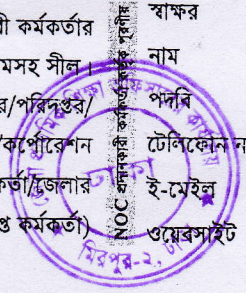 রী কর্মকর্তার
মসহ সীল।
র/পরিদপ্তর/
/কর্পোরেশন
কর্তা/জেলার
প্ত কর্মকর্তা)
NOC প্রদানকারী কর্মকর্তা কর্তৃক পূরণীয়
স্বাক্ষর
নাম
পদবি
টেলিফোন ন
ই-মেইল
ওয়েবসাইট
ঢাকা
মিরপুর-২,